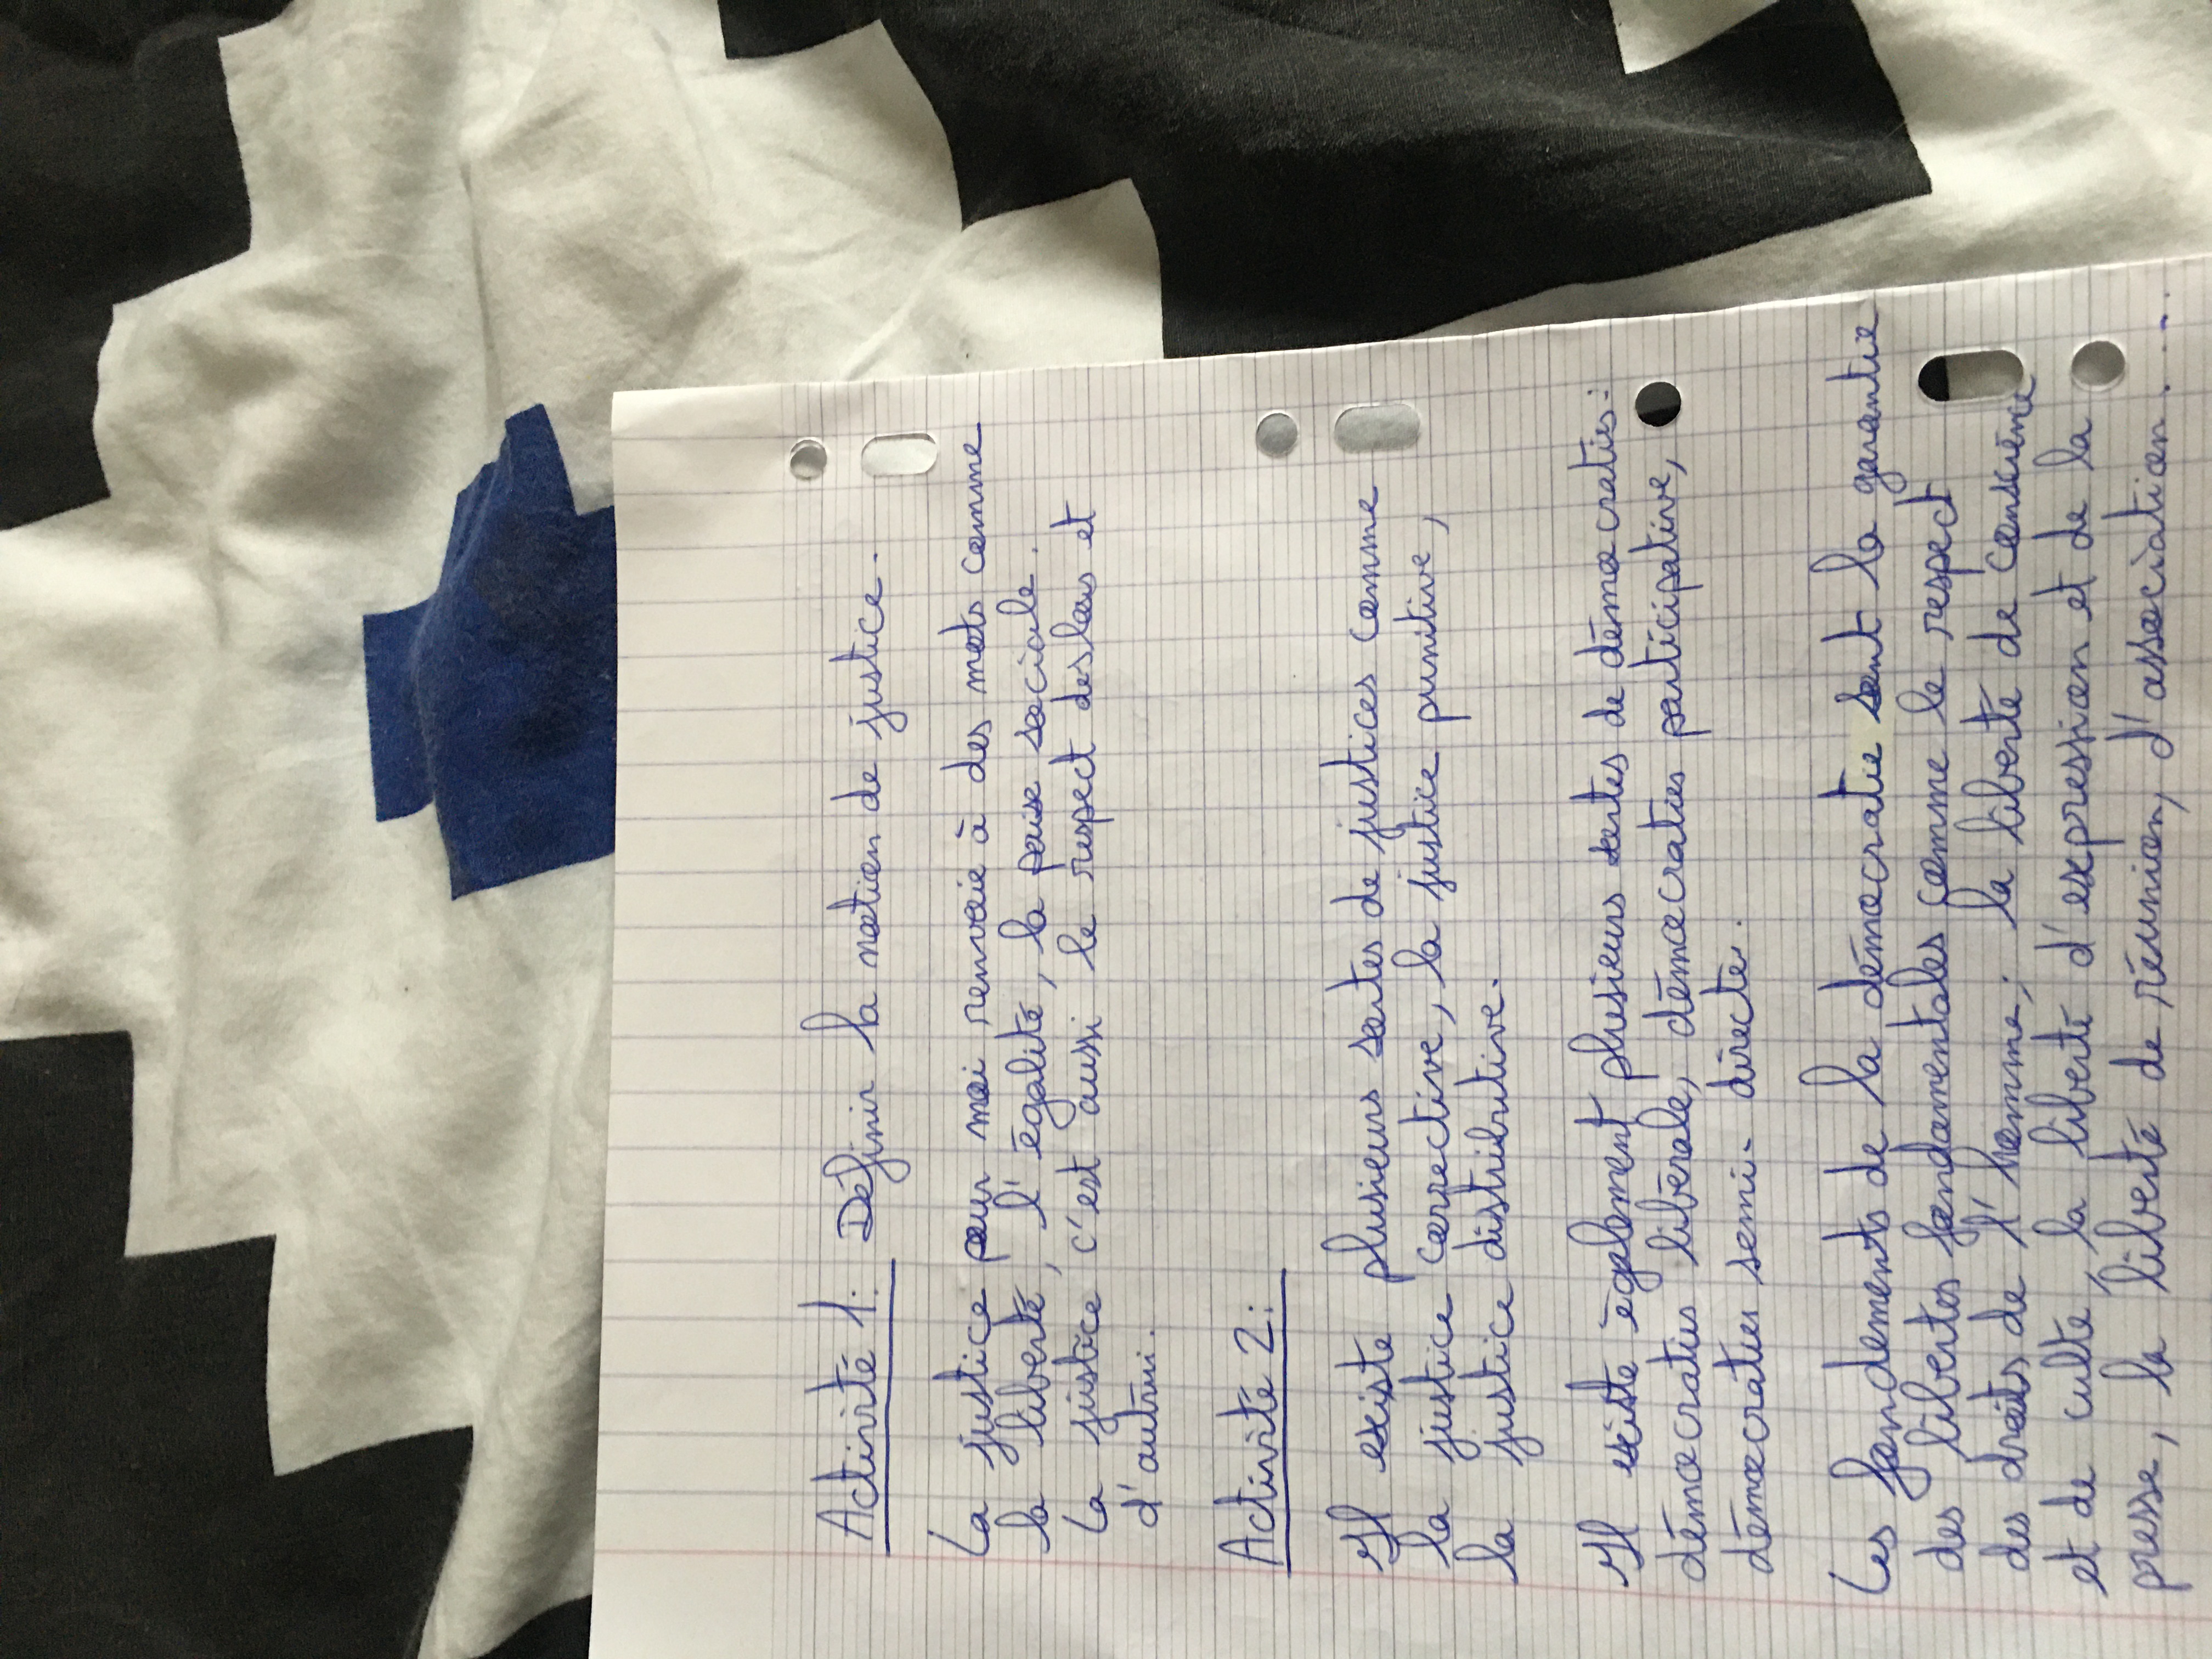 Activité 1: Définir la notion de justice.
La justice pour moi renvoie à des mots comme
la liberté, l'égalité, la paix sociale.
La justice c'est aussi le respect des lois et
d'autrui.
Activité 2:
Il existe plusieurs sortes de justices comme
la justice corrective, la justice punitive,
la justice distributive.
Il existe également plusieurs sortes de démocraties:
démocraties libérale, démocraties participative,
démocraties semi-directe.
Les fondements de la démocratie sont la garantie
des libertés fondamentales comme le respect
des droits de l'homme; la liberté de conscience
et de culte, la liberté d'expression et de la
presse, la liberté de réunion, d'association....